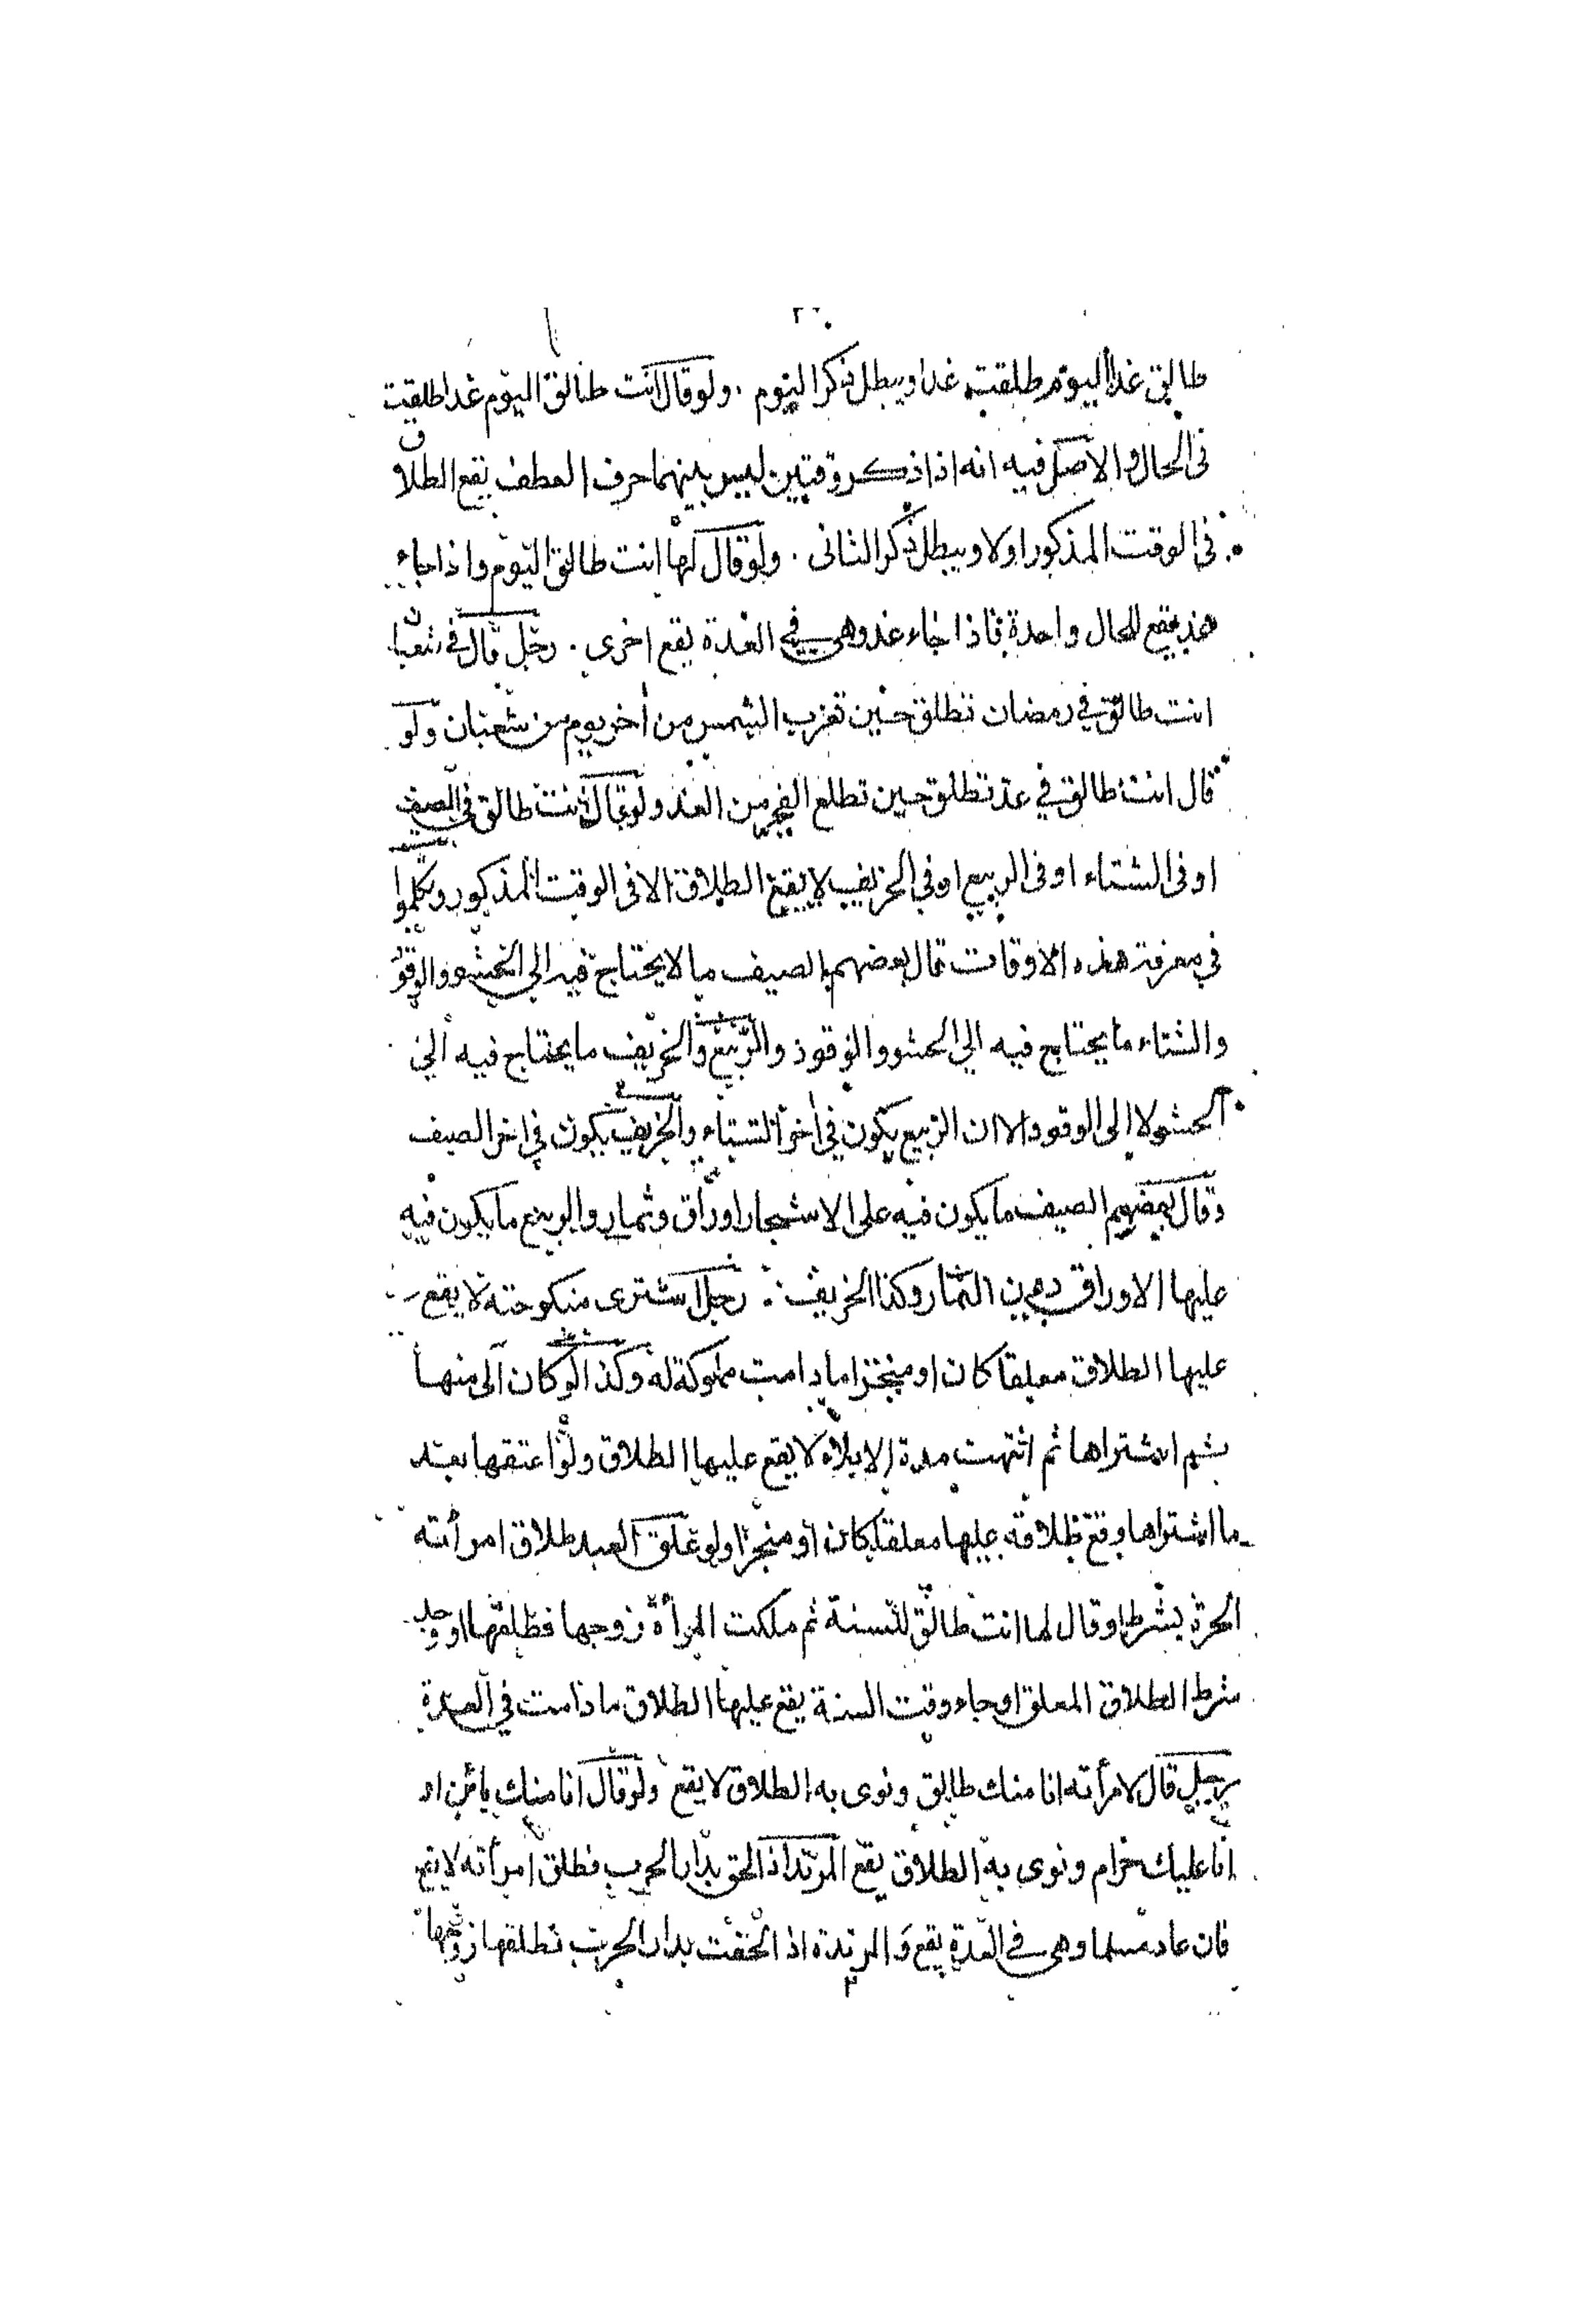 طالق غدا اليوم طلقت غدا ويبطل ذكر اليوم . ولو قال انت طالق اليوم غدا طلقت
فى الحال والاصل فيه انه اذا ذكر وقتين ليس بينهما حرف العطف يقع الطلاق
فى الوقت المذكور اولا ويبطل ذكر الثانى . ولو قال لها انت طالق اليوم واذا جاء
غد يقع للحال واحدة فاذا جاء غد وهى فى العدة يقع اخرى . رجل قال فى شعبان
انت طالق فى رمضان تطلق حين تغرب الشمس من اخر يوم من شعبان ولو
قال انت طالق فى غد تطلق حين تطلع الفجر من الغد ولو قال انت طالق فى الصيف
او فى الشتاء او فى الربيع او فى الخريف لا يقع الطلاق الا فى الوقت المذكور وتكلموا
فى معرفة هذه الاوقات قال بعضهم الصيف ما لا يحتاج فيه الى الحشو والوقود
والشتاء ما يحتاج فيه الى الحشو والوقود والربيع والخريف ما يحتاج فيه الى
الحشو لا الى الوقود الا ان الربيع يكون فى اخر الشتاء والخريف يكون فى اخر الصيف
وقال بعضهم الصيف ما يكون فيه على الاشجار اوراق وثمار والربيع ما يكون فيه
عليها الاوراق دون الثمار وكذا الخريف . رجل اشترى منكوحته لا يقع
عليها الطلاق معلقا كان او منجزا ما دامت مملوكة له وكذا لو كان آلى منها
ثم اشتراها ثم انتهت مدة الايلاء لا يقع عليها الطلاق ولو اعتقها بعد
ما اشتراها وقع طلاقه عليها معلقا كان او منجزا ولو علق العبد طلاق امرأته
الحرة بشرط او قال لها انت طالق للسنة ثم ملكت المرأة زوجها فطلقها او وجد
شرط الطلاق المعلق او جاء وقت السنة يقع عليها الطلاق ما دامت فى العدة
رجل قال لامرأته انا منك طالق ونوى به الطلاق لا يقع ولو قال انا منك بائن او
انا عليك حرام ونوى به الطلاق يقع المرتد اذا لحق بدار الحرب فطلق امرأته لا يقع
فان عاد مسلما وهى فى العدة يقع والمرتدة اذا لحقت بدار الحرب فطلقها زوجها